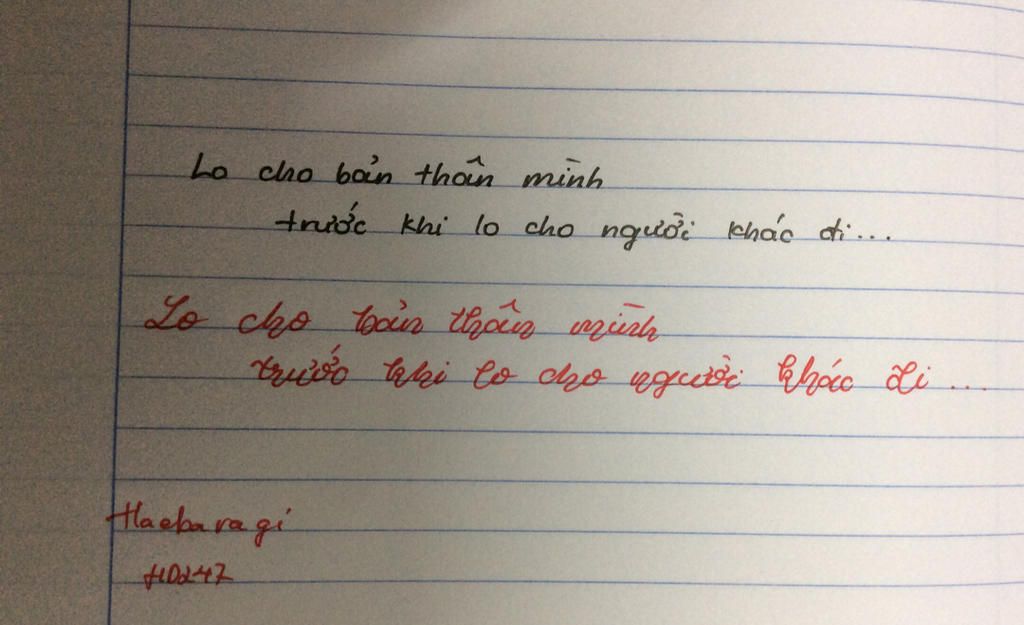 Lo cho bản thân mình
trước khi lo cho người khác đi...
Lo cho bản thân mình
trước khi lo cho người khác đi...
Haebaragi
HD247